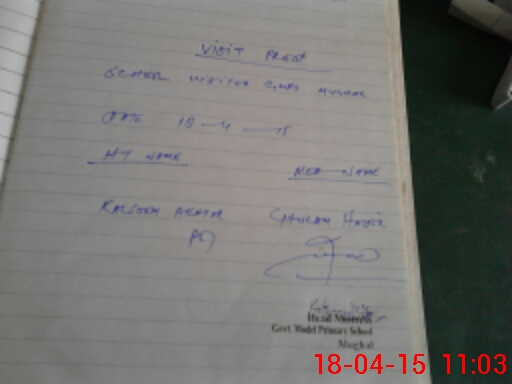 VISIT PROOF
SCHOOL VISITED GMPS MUGHAL
DATE 18-4-15
HT NAME MEA NAME
KALSOOM AKHTAR
Head Mistress
Govt. Model Primary School
Mughal
18-04-15 11:03